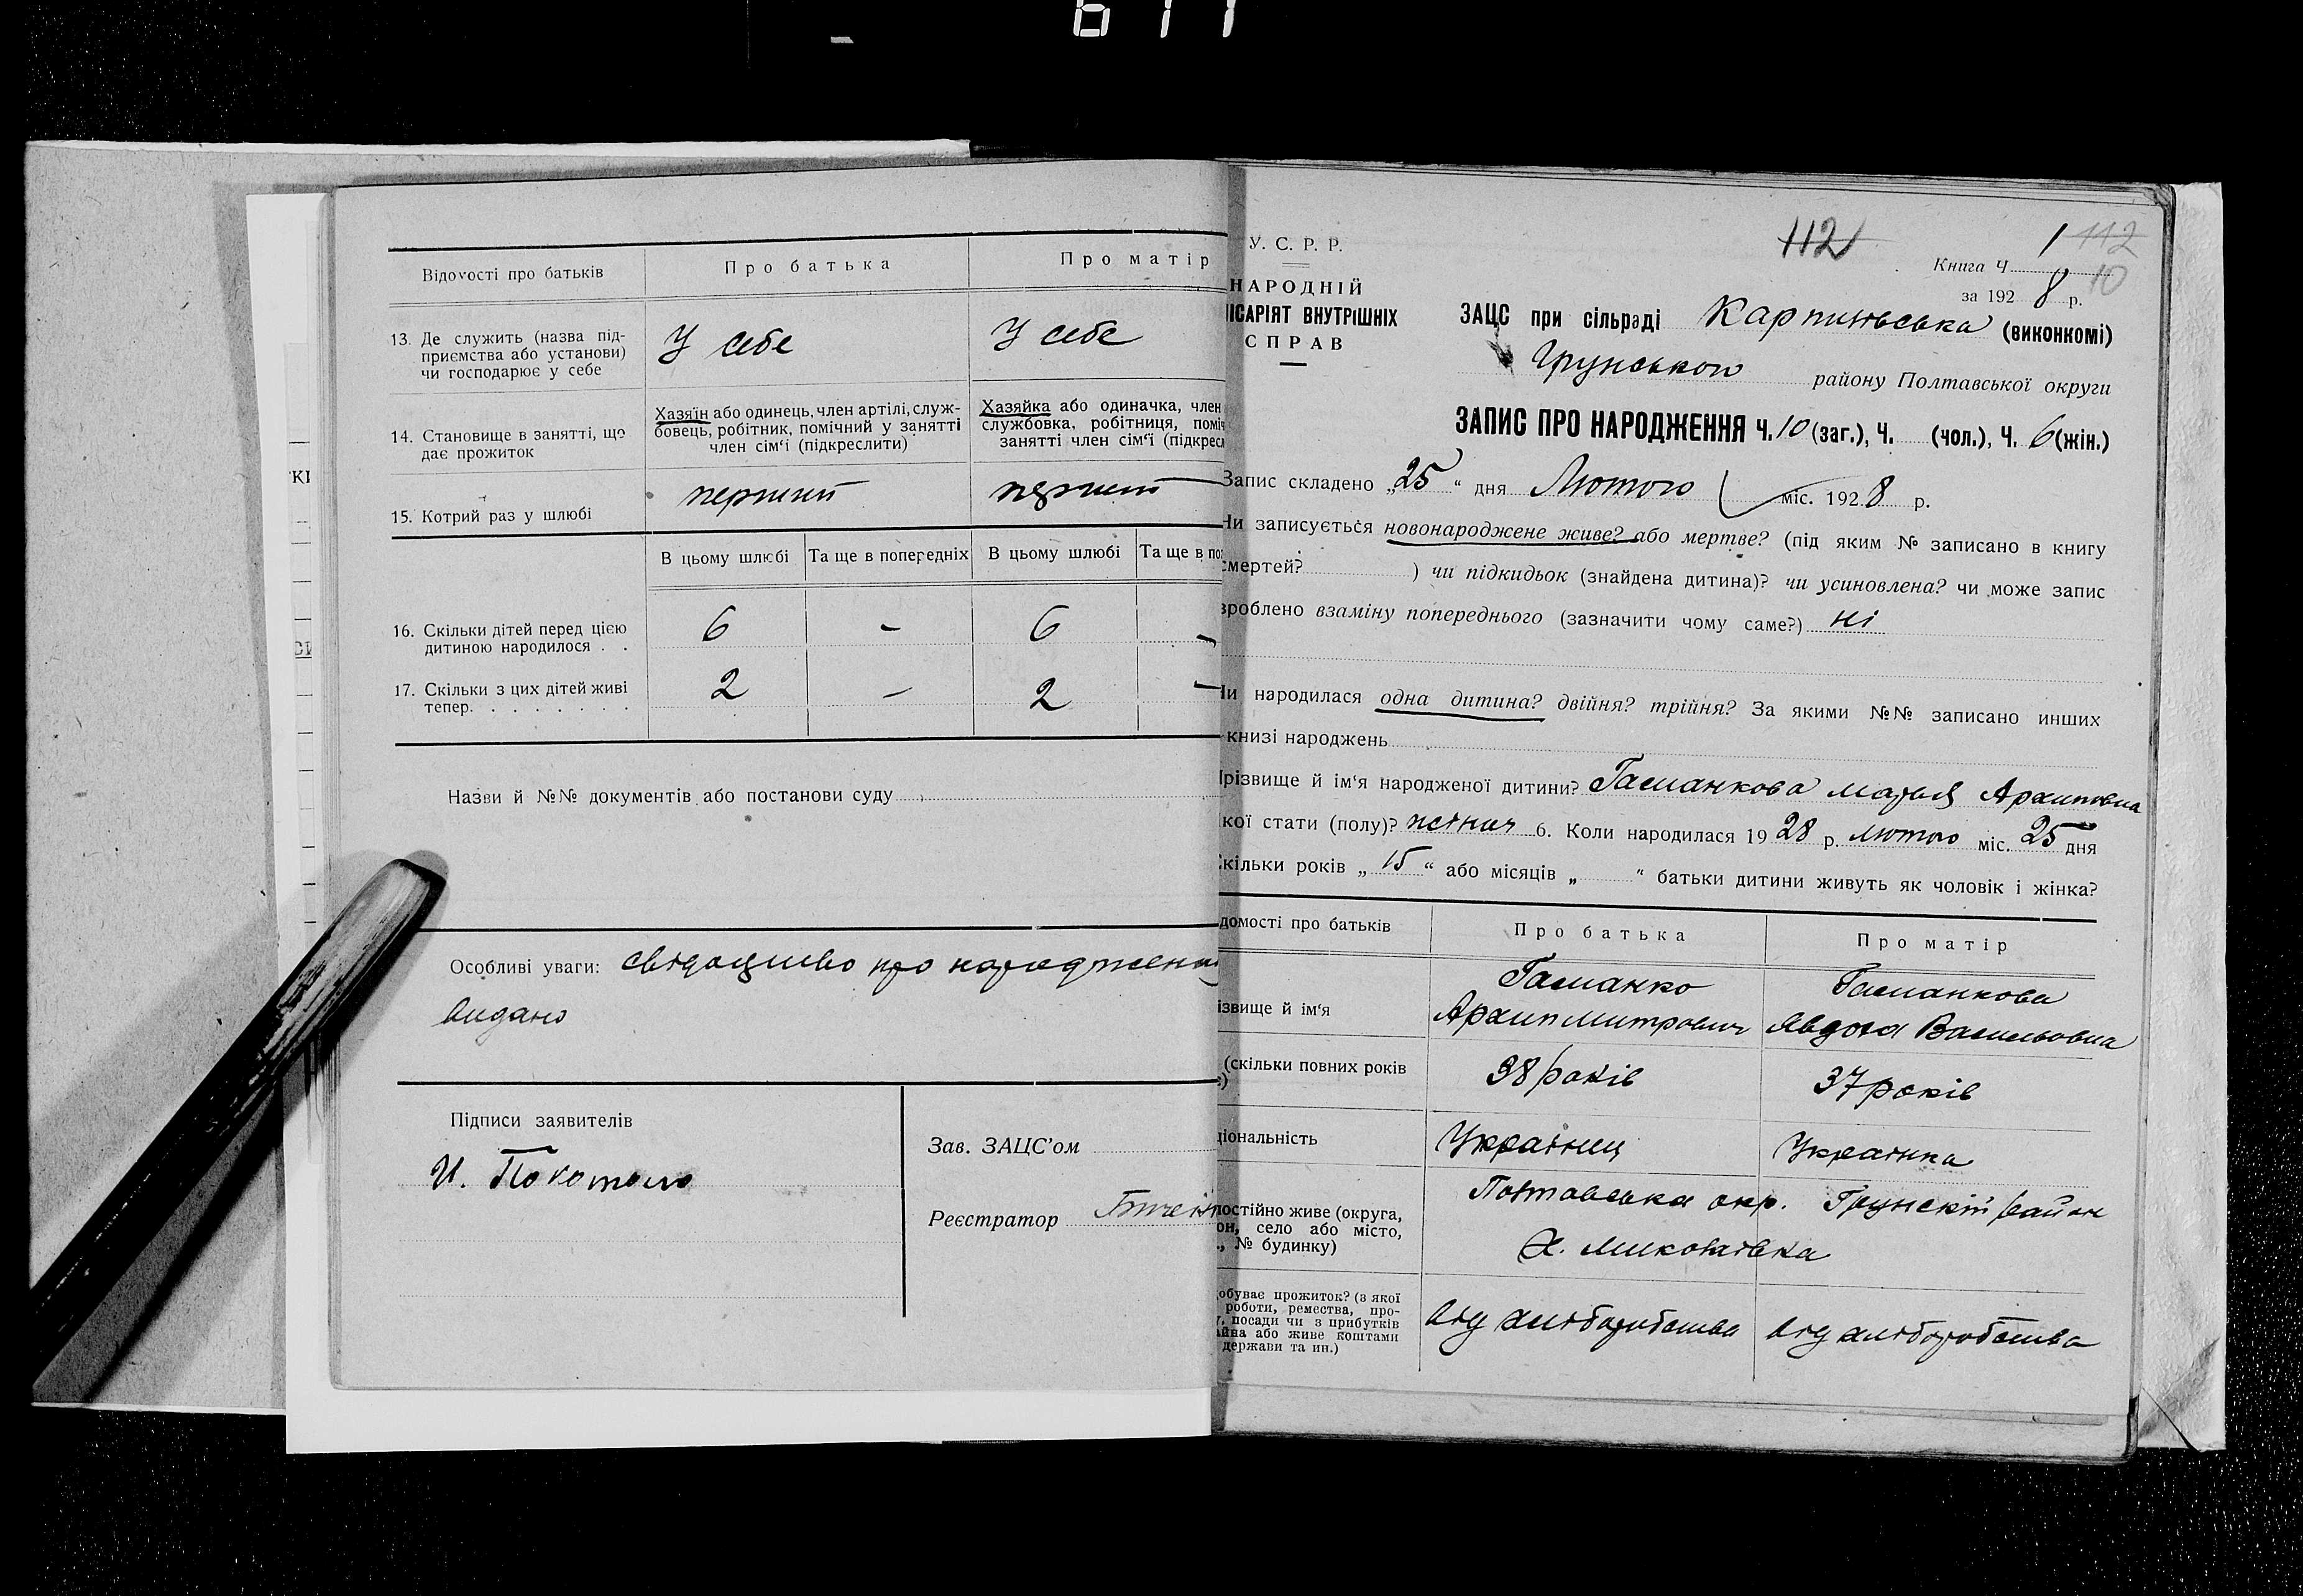 Відомості про батьків
Про батька
Про матір
13. Де служить (назва під-
приємства або установи)
чи господарює у себе
У себе
У себе
14. Становище в занятті, що
дає прожиток
Хазяїн або одинець, член артілі, служ-
бовець, робітник, помічний у занятті
член сім'ї (підкреслити)
Хазяйка або одиначка, член
службовка, робітниця, поміч
занятті член сім'ї (підкресл
15. Котрий раз у шлюбі
перший
перший
В цьому шлюбі
Та ще в попередніх
В цьому шлюбі
Та ще в по
16. Скільки дітей перед цією
дитиною народилося . .
6 - 6 -
17. Скільки з цих дітей живі
тепер. . . . . . . .
2 - 2 -
Назви й №№ документів або постанови суду
Особливі уваги: свідоцтво про народження
видано
Підписи заявителів
И. Покотило
Зав. ЗАЦС'ом
Реєстратор
У. С. Р. Р.
НАРОДНІЙ
ІСАРІЯТ ВНУТРІШНІХ
СПРАВ
112
1 112
Книга Ч
10
за 1928 р.
ЗАЦС при сільраді (виконкомі)
району Полтавської округи
ЗАПИС ПРО НАРОДЖЕННЯ Ч. 10 (заг.), Ч. (чол.), Ч. 6 (жін.)
Запис складено „25" дня Лютого міс. 1928 р.
Чи записується новонароджене живе? або мертве? (під яким № записано в книгу
смертей? ) чи підкидьок (знайдена дитина)? чи усиновлена? чи може запис
зроблено взаміну попереднього (зазначити чому саме?) ні
Чи народилася одна дитина? двійня? трійня? За якими №№ записано инших
книзі народжень
Прізвище й ім'я народженої дитини? Гасманкова Марья Архиповна
кої стати (полу)? жіноч 6. Коли народилася 1928 р. лютого міс. 25 дня
Скільки років „15" або місяців „ " батьки дитини живуть як чоловік і жінка?
домості про батьків
Про батька
Про матір
ізвище й ім'я
Гасманко
Архип Митрович
Гасманкова
Явдоха Васильовна
(скільки повних років
е)
38 років
37 років
ціональність
Українец
Українка
постійно живе (округа,
он, село або місто,
., № будинку)
Полтавська окр. Грунскій район
Х. Миколаївка
обуває прожиток? (з якої
роботи, ремества, про-
, посади чи з прибутків
айна або живе коштами
держави та ин.)
від хліборобства
від хліборобства